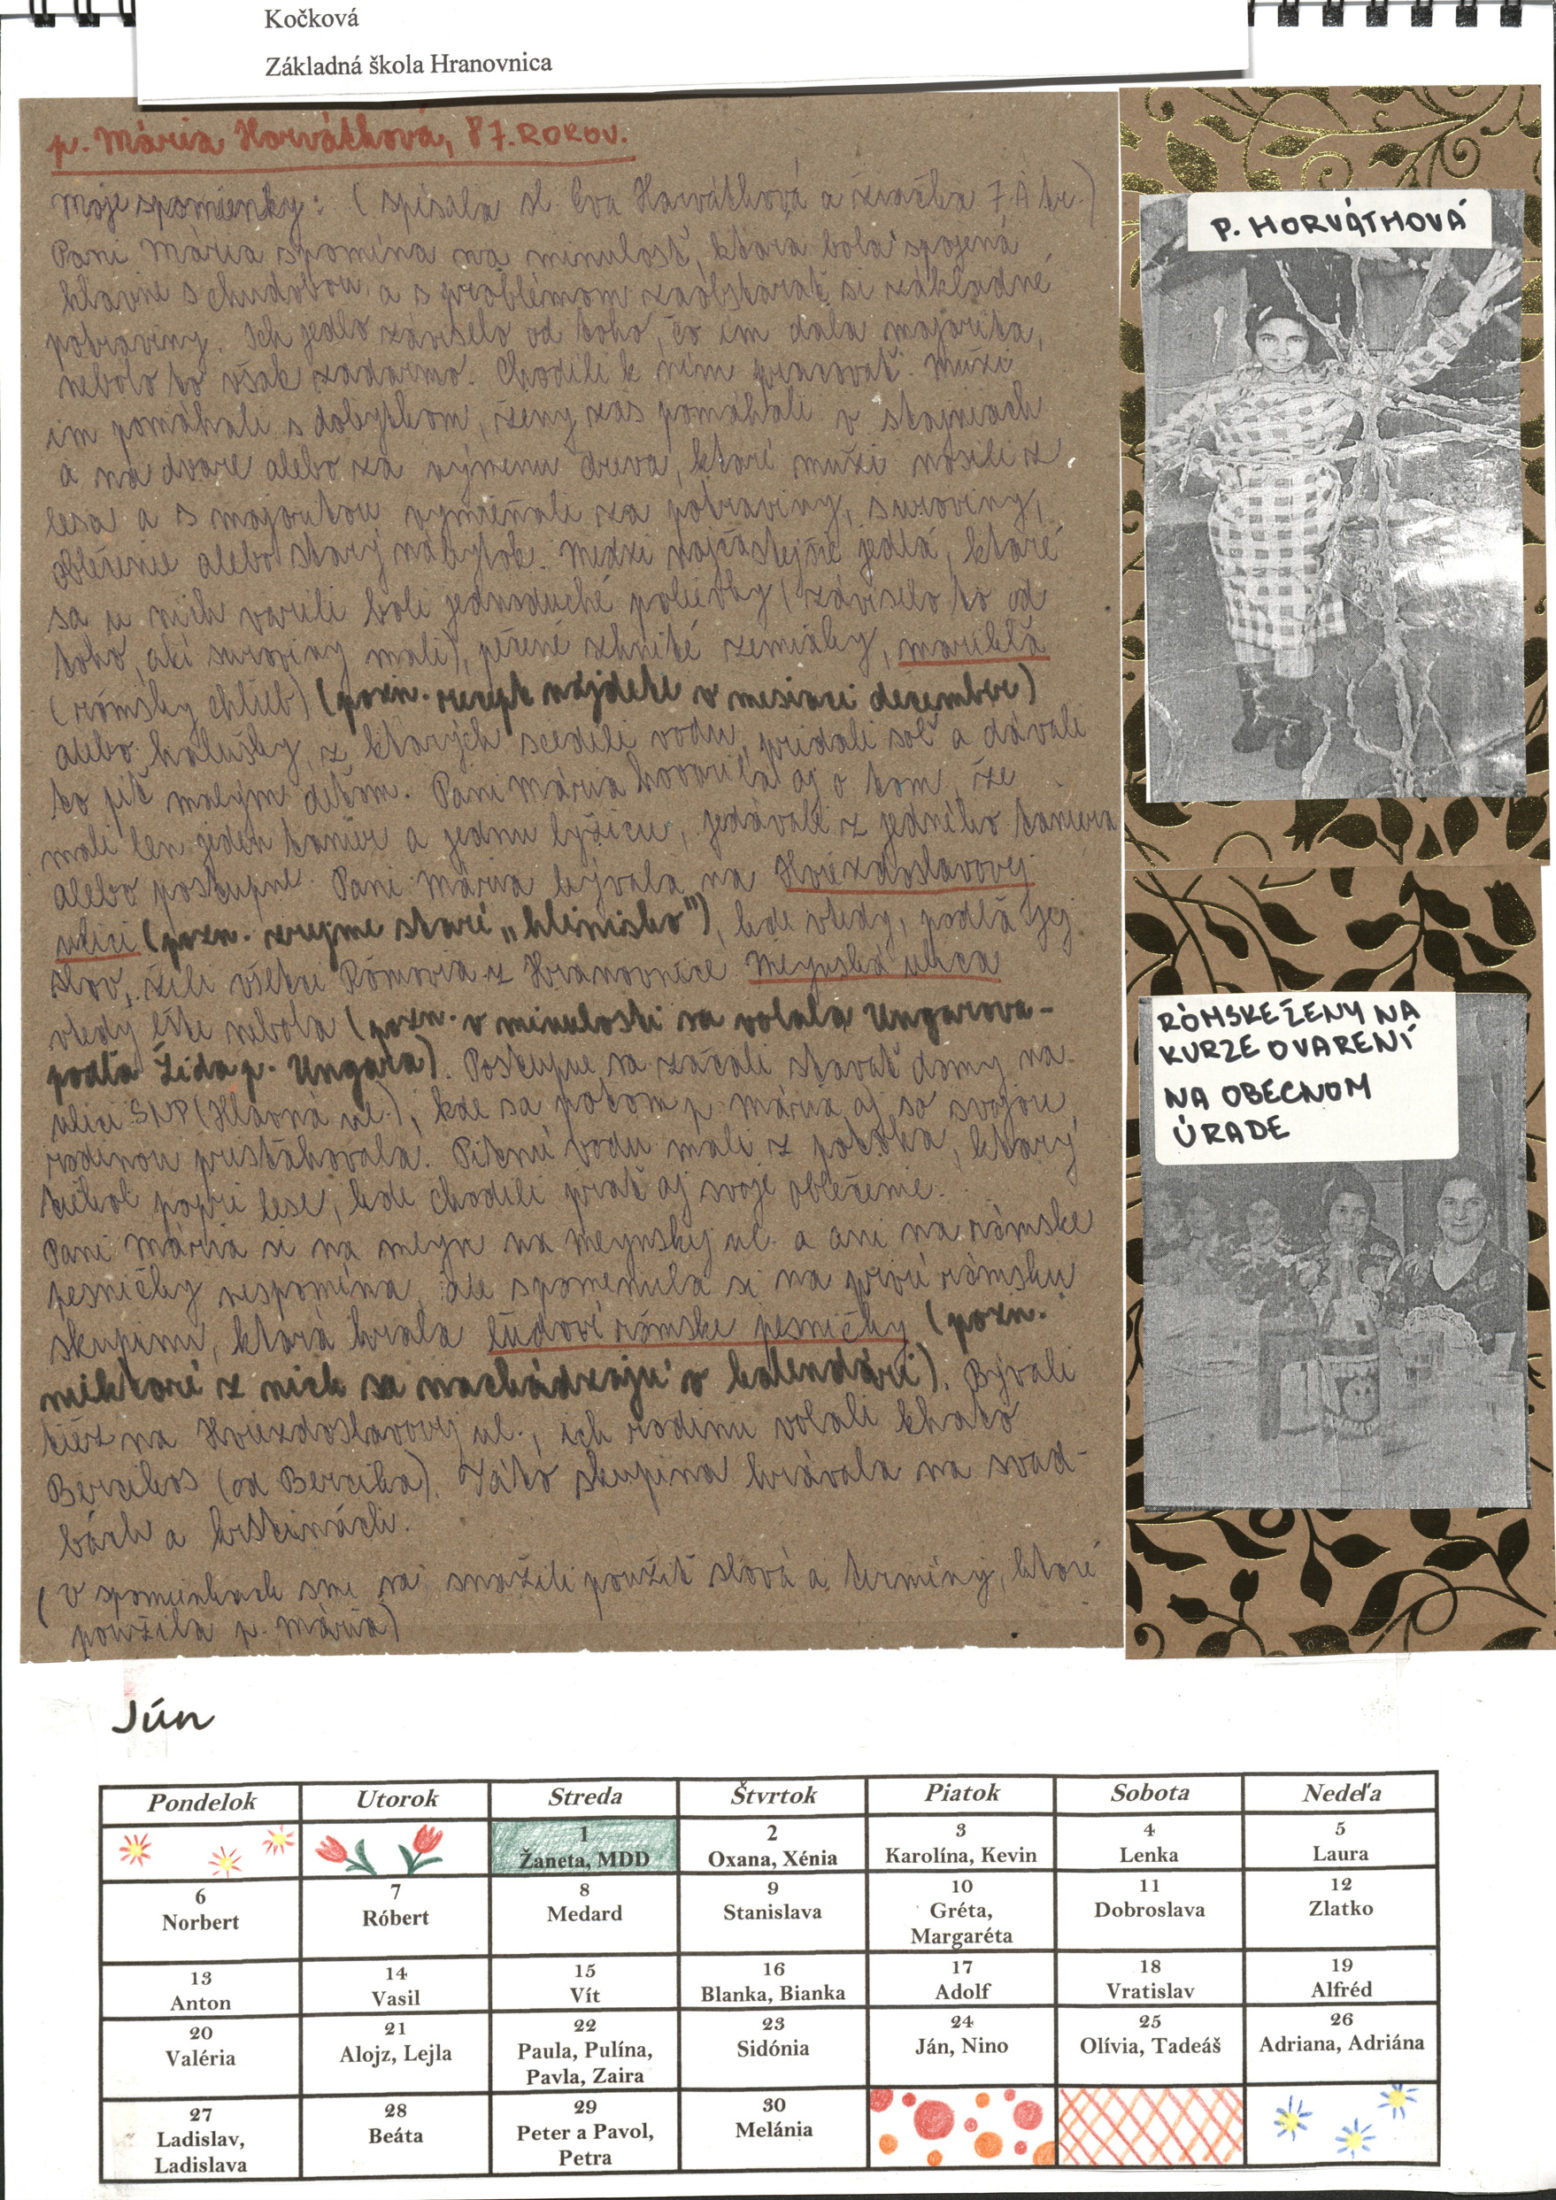 Kočková
Základná škola Hranovnica
p. Mária Horváthová, 87. ROKOV.
Moje spomienky: ( spísala sl. Eva Horváthová a žiačka 7.A tr.)
Pani Mária spomína na minulosť, ktorá bola spojená
hlavne s chudobou a s problémom zaobstarať si základné
potraviny. Ich jedlo záviselo od toho, čo im dala majorita,
nebolo to však zadarmo. Chodili k ním pracovať. Muži
im pomáhali s dobytkom, ženy zas pomáhali v stajniach
a na dvore alebo za výmenu dreva, ktoré muži nosili z
lesa a s majoritou vymieňali za potraviny, suroviny,
oblečenie alebo starý nábytok. Medzi najčastejšie jedlá, ktoré
sa u nich varili boli jednoduché polievky (záviselo to od
toho, aké suroviny mali), pečené zhnité zemiaky, marikľa
(rómsky chlieb) (pozn. recept nájdete v mesiaci december)
alebo halušky, z ktorých scedili vodu, pridali soľ a dávali
to piť malým deťom. Pani Mária hovorila aj o tom, že
mali len jeden tanier a jednu lyžicu, jedávali z jedného taniera
alebo postupne. Pani Mária bývala na Hviezdoslavovej
ulici (pozn. zrejme staré „hlinisko"), kde vtedy, podľa jej
slov, žili všetci Rómovia z Hranovnice Mlynská ulica
vtedy ešte nebola (pozn. v minulosti sa volala Ungarova-
podľa Žida p. Ungara). Postupne sa začali stavať domy na
ulici SNP (Hlavná ul.), kde sa potom p. Mária aj so svojou
rodinou presťahovala. Pitnú vodu mali z potoka, ktorý
tiekol popri lese, kde chodili prať aj svoje oblečenie.
Pani Mária si na mlyn na Mlynskej ul. a ani na rómske
pesničky nespomína, ale spomenula si na prvú rómsku
skupinu, ktorá hrala ľudové rómske pesničky (pozn.
niektoré z nich sa nachádzajú v kalendári). Bývali
tiež na Hviezdoslavovej ul., ich rodinu volali khato
Bercikos (od Bercika). Táto skupina hrávala na svad-
bách a krstinách.
(v spomienkach sme sa snažili použiť slová a termíny, ktoré
použila p. Mária)
P. HORVÁTHOVÁ
RÓMSKE ŽENY NA
KURZE O VARENÍ
NA OBECNOM
ÚRADE
Jún
Pondelok Utorok Streda Štvrtok Piatok Sobota Nedeľa
1 2 3 4 5
Žaneta, MDD Oxana, Xénia Karolína, Kevin Lenka Laura
6 7 8 9 10 11 12
Norbert Róbert Medard Stanislava Gréta, Dobroslava Zlatko
Margaréta
13 14 15 16 17 18 19
Anton Vasil Vít Blanka, Bianka Adolf Vratislav Alfréd
20 21 22 23 24 25 26
Valéria Alojz, Lejla Paula, Pulína, Sidónia Ján, Nino Olívia, Tadeáš Adriana, Adriána
Pavla, Zaira
27 28 29 30
Ladislav, Beáta Peter a Pavol, Melánia
Ladislava Petra